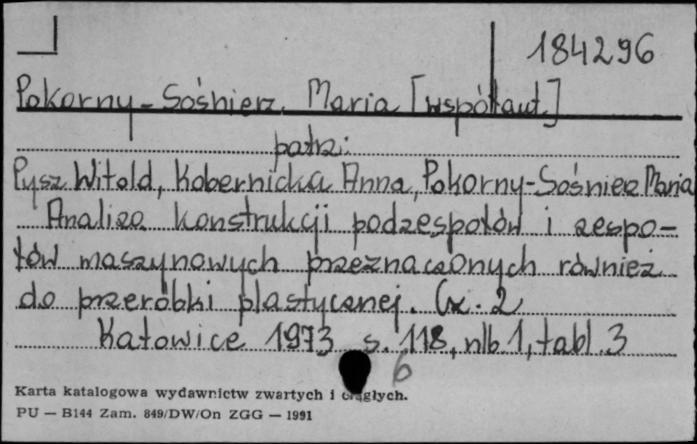 184296
Pokorny-Sośnierz Maria [współaut.]
patrz:
Pysz Witold, Kobernicka Anna, Pokorny-Sośnierz Maria
Analiza konstrukcji podzespołów i zespo-
łów maszynowych przeznaczonych również
do przeróbki plastycznej. Cz. 2
Katowice 1973 s. 118, nlb 1, tabl. 3
6
Karta katalogowa wydawnictw zwartych i ciągłych.
PU — B144 Zam. 849/DW/On ZGG — 1991